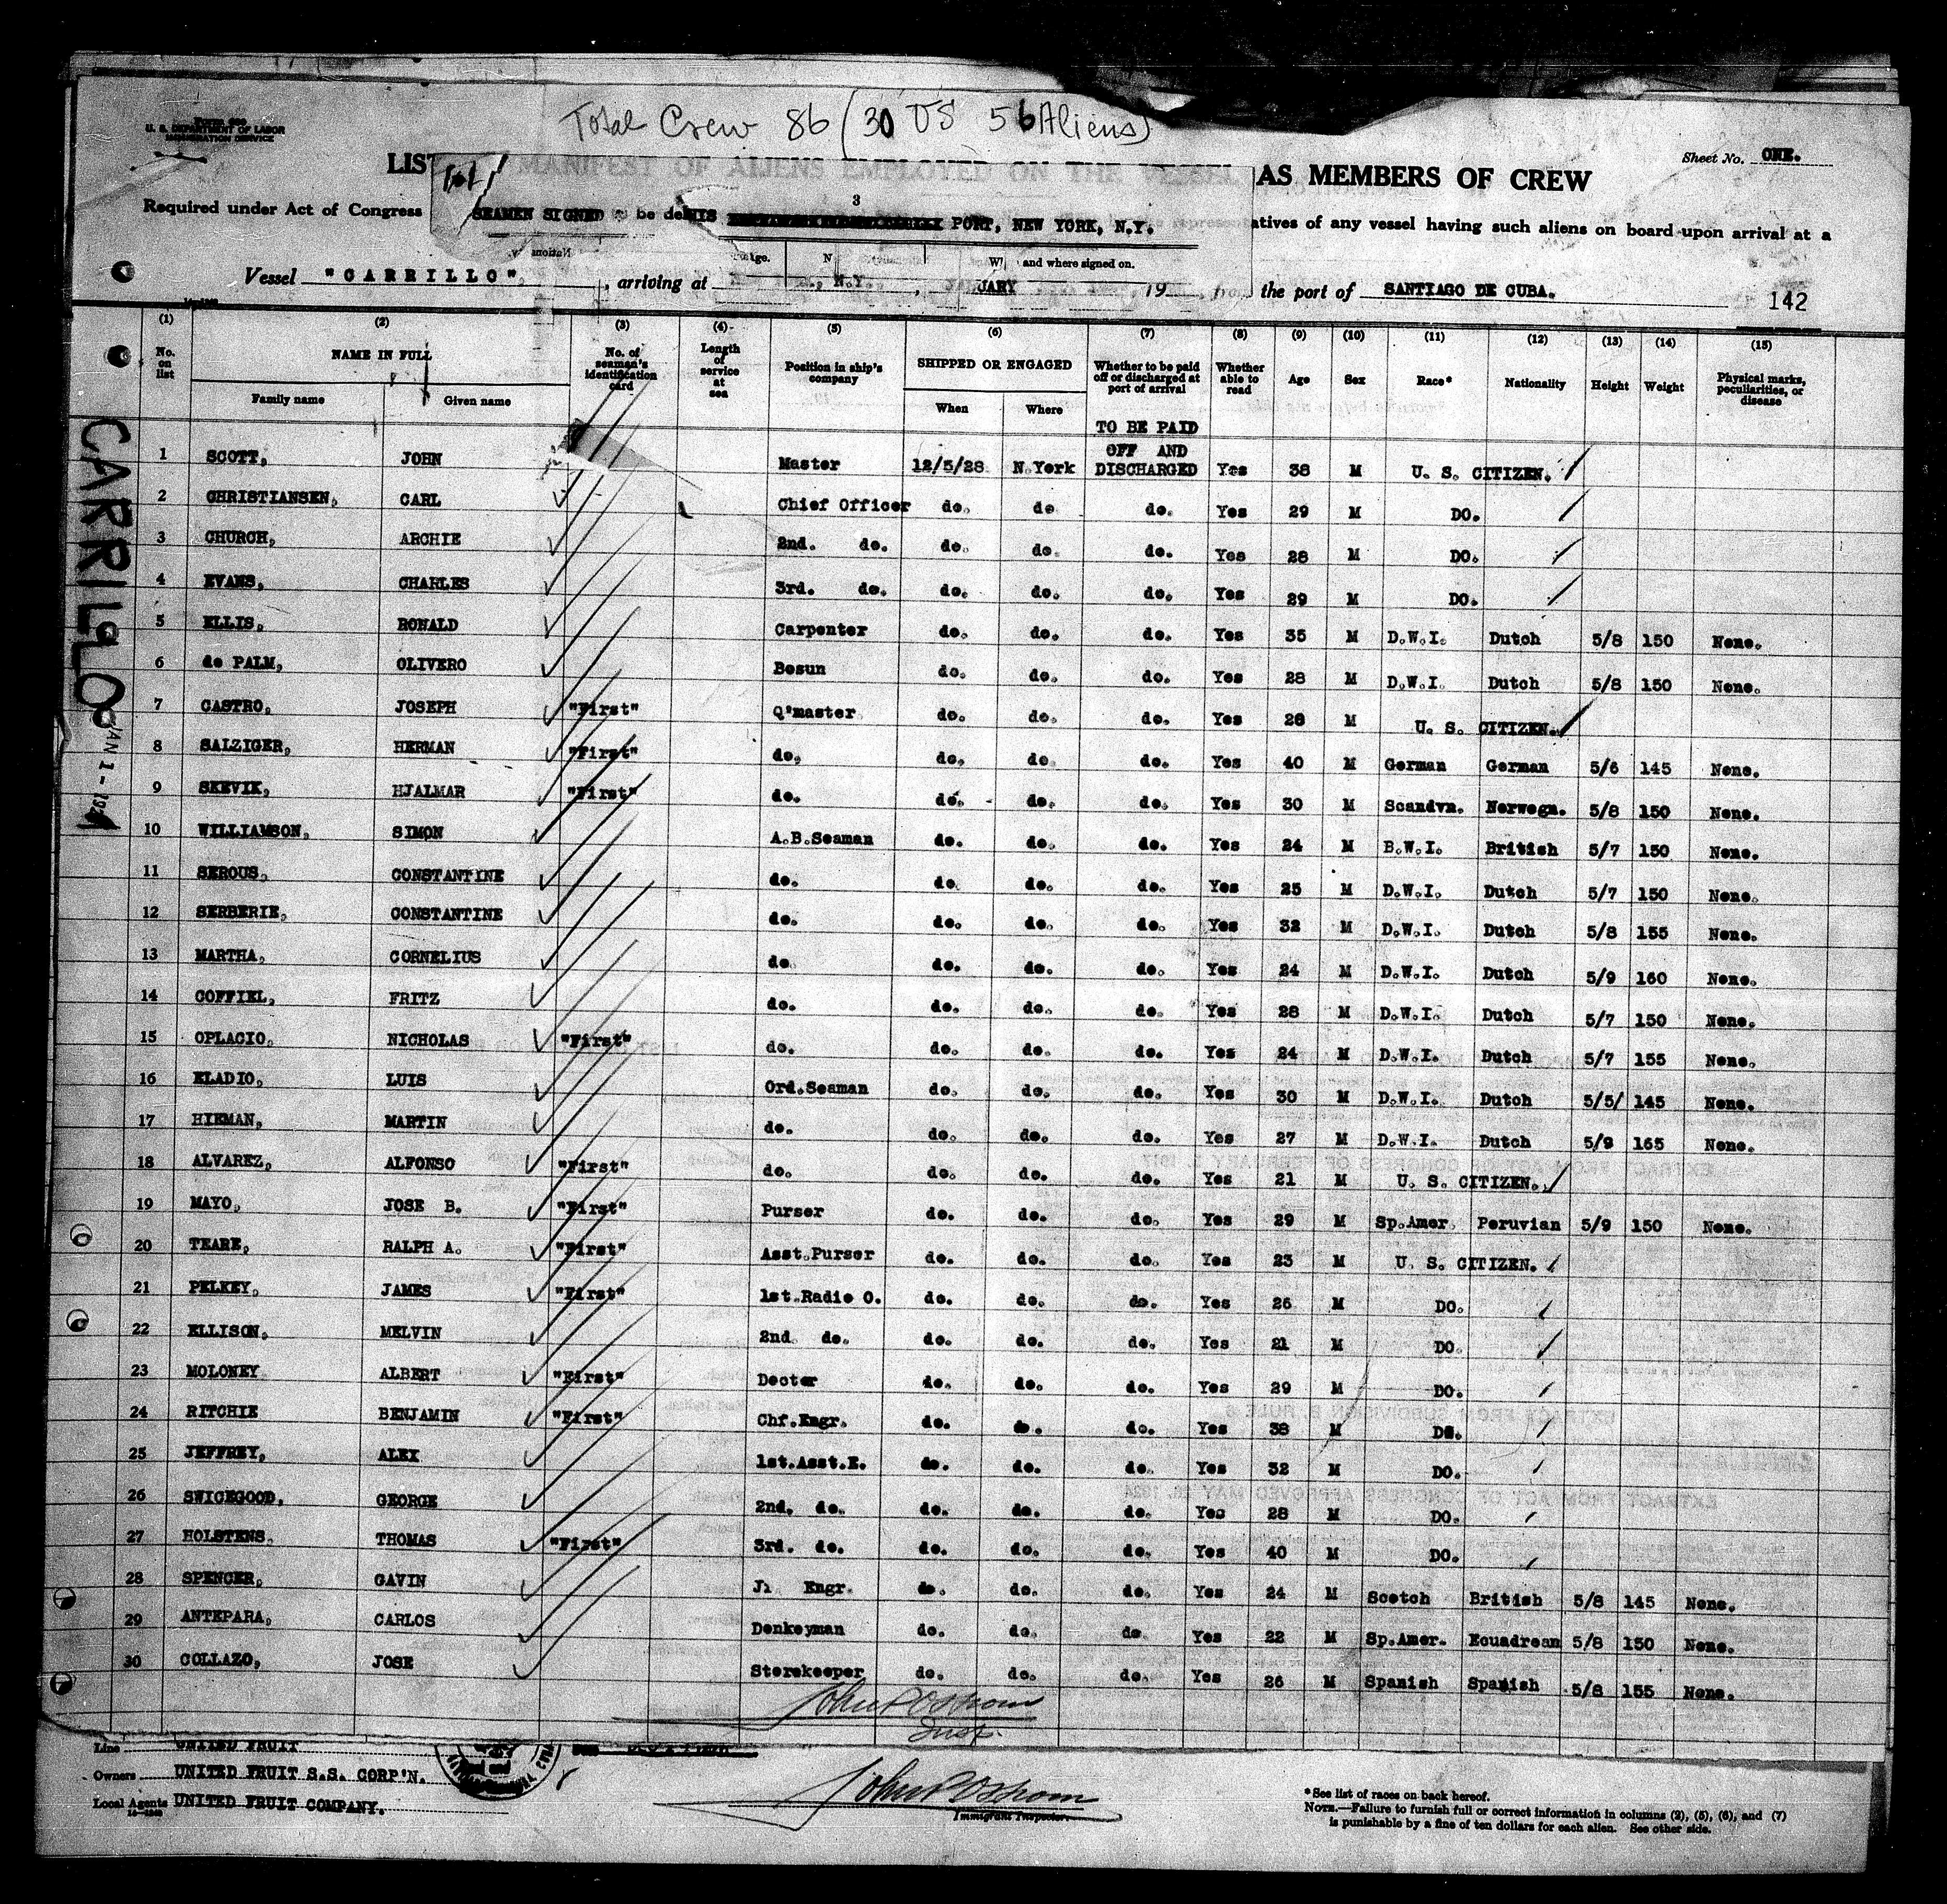 Total Crew 86 (30 US 56 Aliens)
Form 689
U. S. DEPARTMENT OF LABOR
IMMIGRATION SERVICE
Sheet No. ONE.
LIST MANIFEST OF ALIENS EMPLOYED ON THE VESSEL AS MEMBERS OF CREW
3
Required under Act of Congress SEAMEN SIGNED PORT, NEW YORK, N.Y. atives of any vessel having such aliens on board upon arrival at a
and where signed on.
Vessel "CARRILLO", arriving at N.Y., JANUARY 19 from the port of SANTIAGO DE CUBA.
142
(1) (2) (3) (4) (5) (6) (7) (8) (9) (10) (11) (12) (13) (14) (15)
No. on list NAME IN FULL Family name Given name No. of seaman's identification card Length of service at sea Position in ship's company SHIPPED OR ENGAGED When Where Whether to be paid off or discharged at port of arrival Whether able to read Age Sex Race* Nationality Height Weight Physical marks, peculiarities, or disease
TO BE PAID OFF AND DISCHARGED
1 SCOTT, JOHN Master 12/5/28 N.York Yes 38 M U. S. CITIZEN.
2 CHRISTIANSEN, CARL Chief Officer do. do do. Yes 29 M DO.
3 CHURCH, ARCHIE 2nd. do. do. do. do. Yes 28 M DO.
4 EVANS, CHARLES 3rd. do. do. do. do. Yes 29 M DO.
5 ELLIS, RONALD Carpenter do. do. do. Yes 35 M D.W.I. Dutch 5/8 150 None.
6 de PALM, OLIVERO Bosun do. do. do. Yes 28 M D.W.I. Dutch 5/8 150 None.
7 CASTRO, JOSEPH "First" Q'master do. do. do. Yes 28 M U. S. CITIZEN.
8 SALZIGER, HERMAN "First" do. do. do. do. Yes 40 M German German 5/6 145 None.
9 SKEVIK, HJALMAR "First" do. do. do. do. Yes 30 M Scandvn. Norwegn. 5/8 150 None.
10 WILLIAMSON, SIMON A.B.Seaman do. do. do. Yes 24 M B.W.I. British 5/7 150 None.
11 SEROUS, CONSTANTINE do. do. do. do. Yes 25 M D.W.I. Dutch 5/7 150 None.
12 SERBERIE, CONSTANTINE do. do. do. do. Yes 32 M D.W.I. Dutch 5/8 155 None.
13 MARTHA, CORNELIUS do. do. do. do. Yes 24 M D.W.I. Dutch 5/9 160 None.
14 COFFIEL, FRITZ do. do. do. do. Yes 28 M D.W.I. Dutch 5/7 150 None.
15 OPLACIO, NICHOLAS "First" do. do. do. do. Yes 24 M D.W.I. Dutch 5/7 155 None.
16 ELADIO, LUIS Ord.Seaman do. do. do. Yes 30 M D.W.I. Dutch 5/5/ 145 None.
17 HIEMAN, MARTIN do. do. do. do. Yes 27 M D.W.I. Dutch 5/9 165 None.
18 ALVAREZ, ALFONSO "First" do. do. do. do. Yes 21 M U. S. CITIZEN.
19 MAYO, JOSE B. "First" Purser do. do. do. Yes 29 M Sp.Amer. Peruvian 5/9 150 None.
20 TEARE, RALPH A. "First" Asst.Purser do. do. do. Yes 23 M U. S. CITIZEN.
21 PELKEY, JAMES "First" 1st.Radio O. do. do. do. Yes 26 M DO.
22 ELLISON, MELVIN 2nd do. do. do. do. Yes 21 M DO.
23 MOLONEY ALBERT "First" Doctor do. do. do. Yes 29 M DO.
24 RITCHIE BENJAMIN "First" Chf.Engr. do. do. do. Yes 38 M DO.
25 JEFFREY, ALEX 1st.Asst.E. do. do. do. Yes 32 M DO.
26 SWICEGOOD, GEORGE 2nd. do. do. do. do. Yes 28 M DO.
27 HOLSTENS, THOMAS "First" 3rd. do. do. do. do. Yes 40 M DO.
28 SPENCER, GAVIN Jr Engr. do. do. do. Yes 24 M Scotch British 5/8 145 None.
29 ANTEPARA, CARLOS Donkeyman do. do. do. Yes 22 M Sp.Amer. Ecuadrean 5/8 150 None.
30 COLLAZO, JOSE Storekeeper do. do. do. Yes 26 M Spanish Spanish 5/8 155 None.
CARRILLO
JAN 1 - 1929
John P Ostrom
Insp.
Line UNITED FRUIT
Owners UNITED FRUIT S.S. CORP'N.
Local Agents UNITED FRUIT COMPANY.
John P Ostrom
Immigrant Inspector.
*See list of races on back hereof.
NOTE.—Failure to furnish full or correct information in columns (2), (5), (6), and (7)
is punishable by a fine of ten dollars for each alien. See other side.